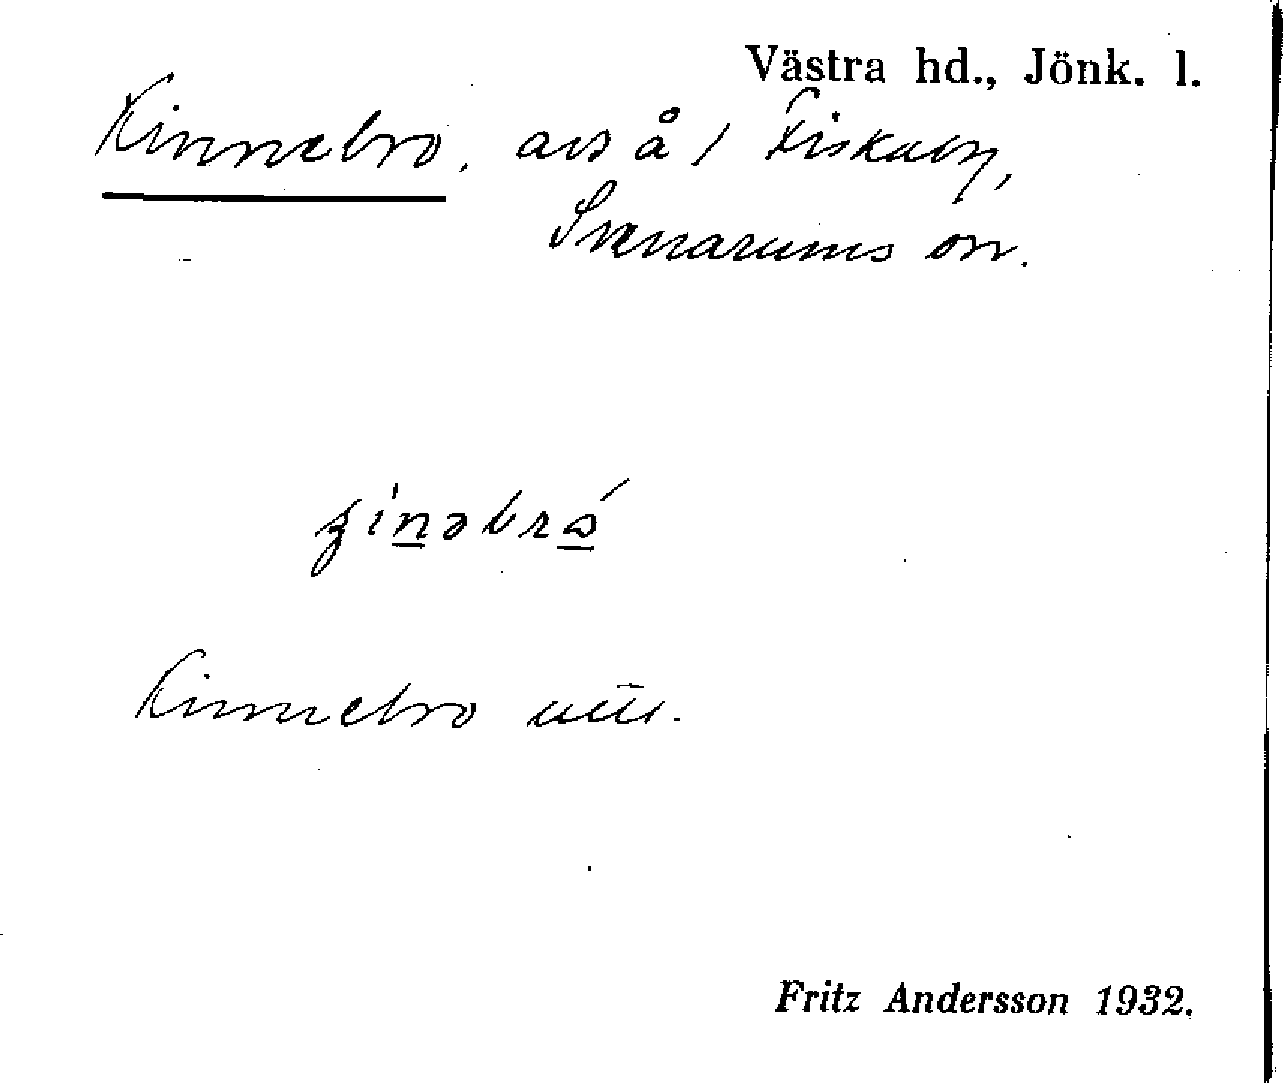 Västra hd., Jönk. l.
Kinnebro, avs å / Fiskaby,
Svenarums sn.
Kinnebro
Fritz Andersson 1932.